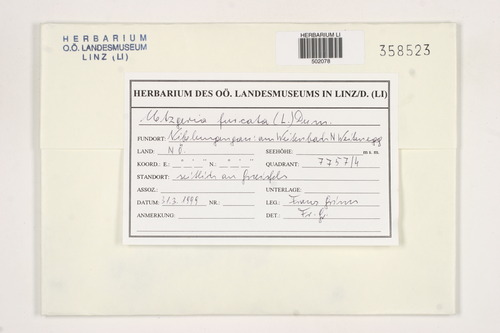 HERBARIUM
O.Ö. LANDESMUSEUM
LINZ (LI)
HERBARIUM LI
502078
358523
HERBARIUM DES OÖ. LANDESMUSEUMS IN LINZ/D. (LI)
Metzgeria furcata (L.) Dum.
FUNDORT: Nibelungengau: am Weitenbach N Weitenegg
LAND: NÖ SEEHÖHE: m s. m.
KOORD.: E.: ° ' " N.: ° ' " QUADRANT: 7757/4
STANDORT: seitlich an
ASSOZ.: UNTERLAGE:
DATUM: 31.3.1999 NR.: LEG.: Franz Grims
ANMERKUNG: DET.: Fr. G